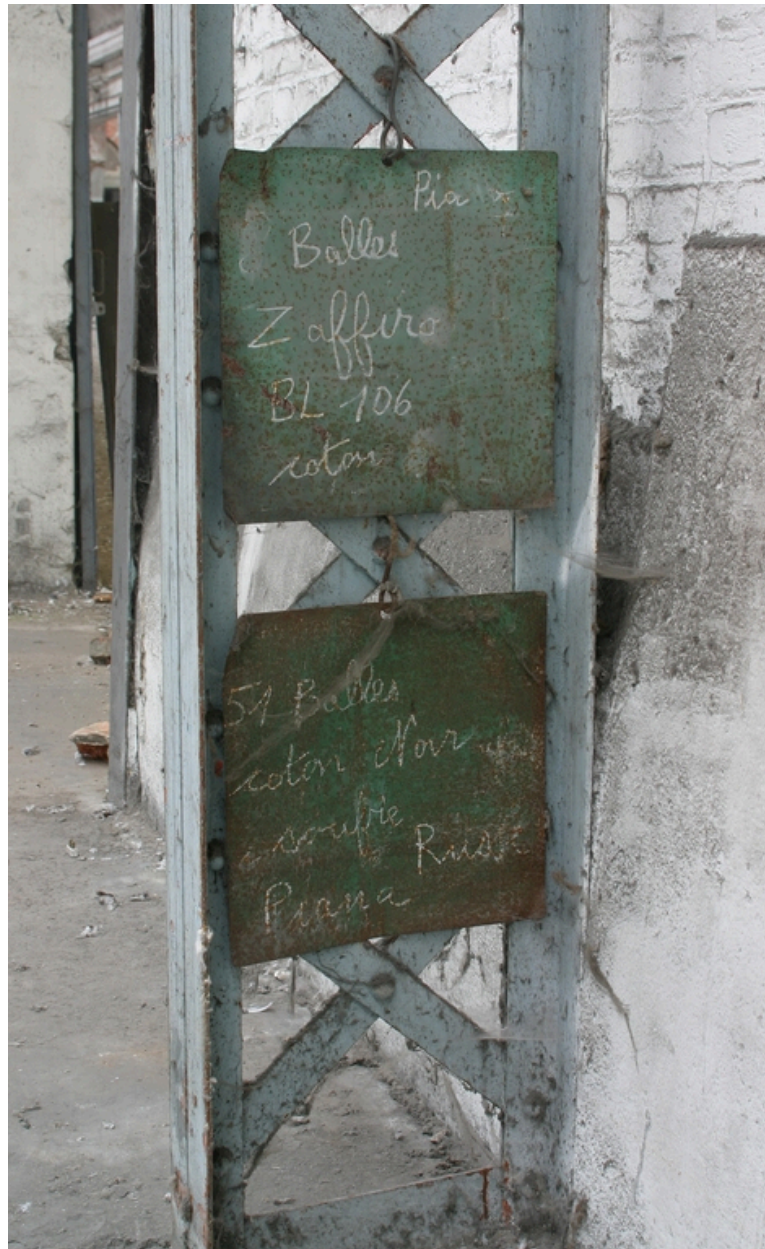 Pia
Balles
Zaffiro
BL 106
coton
51 Balles
coton Noir
soufre
Piana